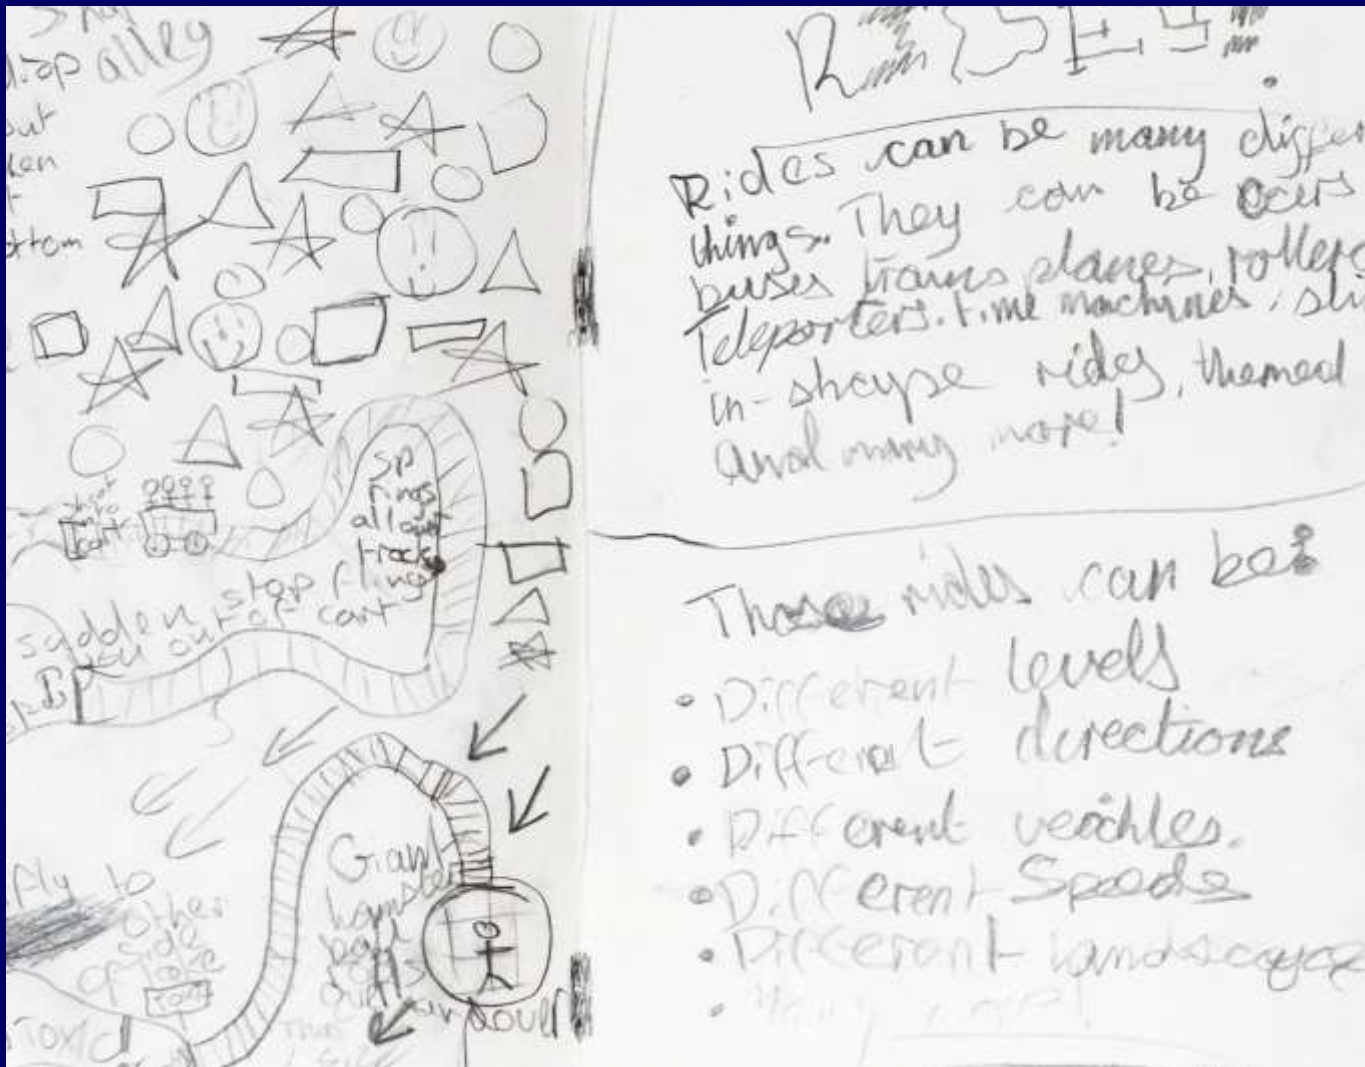 alley
out
ottom
shoot
into
cart
sp
rings
all over
track
sudden stop flings
you out of cart
fly to
other
side
of lake
TOXIC
Giant
hamster
ball
rolls
RIDES!
Rides can be many differen
things. They can be cars
buses trains planes, rollerc
Teleporters. time machines, sli
in-shaype rides, themed
and many more!
These rides can be:
• Different levels
• Different directions
• Different veichles.
• Different Speeds
• Different landscape
• Many more!